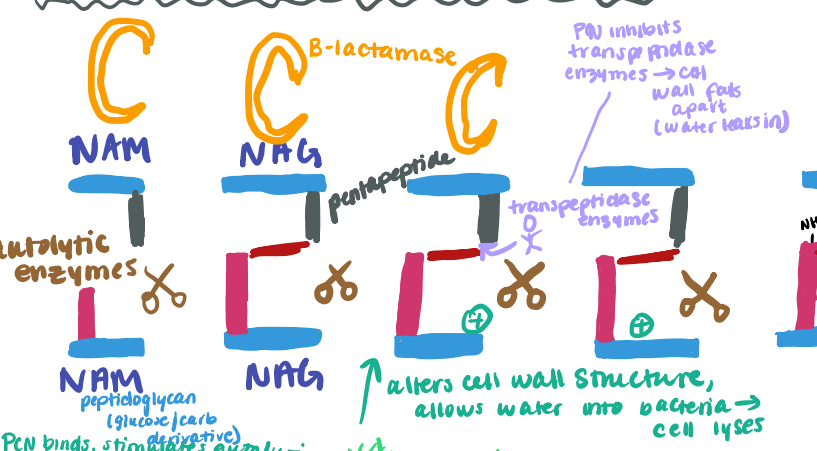 B-lactamase
PCN inhibits
transpeptidase
enzymes → cell
wall falls
apart
(water leaks in)
NAM
NAG
pentapeptide
transpeptidase
enzymes
autolytic
enzymes
NH
NAM
NAG
peptidoglycan
(glucose/carb
derivative)
alters cell wall structure,
allows water into bacteria →
cell lyses
PCN binds, stimulates